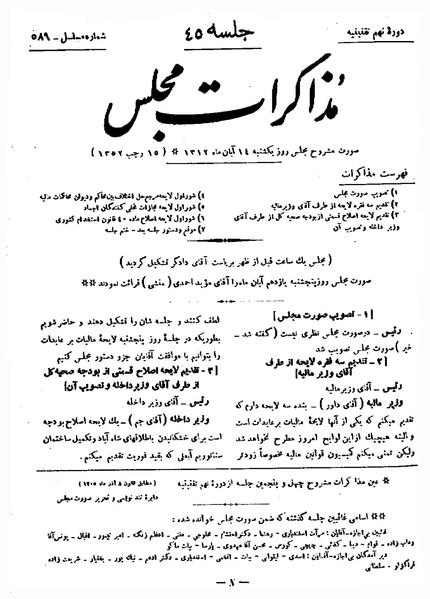 دورهٔ نهم تقنینیه
جلسه ۴۵
شماره مسلسل - ۵۸۹
مذاکرات مجلس
صورت مشروح مجلس روز یکشنبه ۱۴ آبان ماه ۱۳۱۲ * (۱۵ رجب ۱۳۵۲)
فهرست مذاکرات
۱) تصویب صورت مجلس
۲) تقدیم سه فقره لایحه از طرف آقای وزیر مالیه
۳) تقدیم لایحه اصلاح قسمتی از بودجه صحیه کل از طرف آقای
وزیر داخله و تصویب آن
۴) شور اول لایحه مرجع حل اختلاف بین محاکم و دیوان محاکمات مالیه
۵) شور اول لایحه مجازات مخفی کنندگان اجساد
۶) شور اول لایحه اصلاح ماده ۴۰ قانون استخدام کشوری
۷) موقع و دستور جلسه بعد - ختم جلسه
(مجلس یک ساعت قبل از ظهر بریاست آقای دادگر تشکیل گردید)
صورت مجلس روز پنجشنبه یازدهم آبان ماه را آقای مؤید احمدی (منشی) قرائت نمودند
[۱ - تصویب صورت مجلس]
رئیس - در صورت مجلس نظری نیست (گفته شد -
خیر) صورت مجلس تصویب شد
[۲ - تقدیم سه فقره لایحه از طرف
آقای وزیر مالیه]
رئیس - آقای وزیر مالیه
وزیر مالیه (آقای داور) - بنده سه لایحه دارم که
تقدیم میکنم که یکی از آنها لایحهٔ مالیات بر عایدات است
و البته هیچیک از این لوایح امروز مطرح نخواهد شد
ولیکن تمنی میکنم کمیسیون قوانین مالیه مخصوصاً زودتر
لطف کنند و جلسه شان را تشکیل دهند و حاضر شویم
بطوریکه در جلسهٔ روز پنجشنبه لایحهٔ مالیات بر عایدات
را بتوانیم با موافقت آقایان جزو دستور مجلس کنیم
[۳ - تقدیم لایحه اصلاح قسمتی از بودجه صحیه کل
از طرف آقای وزیر داخله و تصویب آن]
رئیس - آقای وزیر داخله
وزیر داخله (آقای جم) - یک لایحه اصلاح بودجه
است برای خشکانیدن باطلاقهای شاه آباد و تکمیل ساختمان
سناتوریم آبعلی که بقید فوریت تقدیم میکنم.
* عین مذاکرات مشروح چهل و پنجمین جلسه از دورهٔ نهم تقنینیه
(مطابق قانون ۸ آذر ماه ۱۳۰۵)
دایرهٔ تند نویسی و تحریر صورت مجلس
** اسامی غائبین جلسه گذشته که ضمن صورت مجلس خوانده شده:
- ۸ -